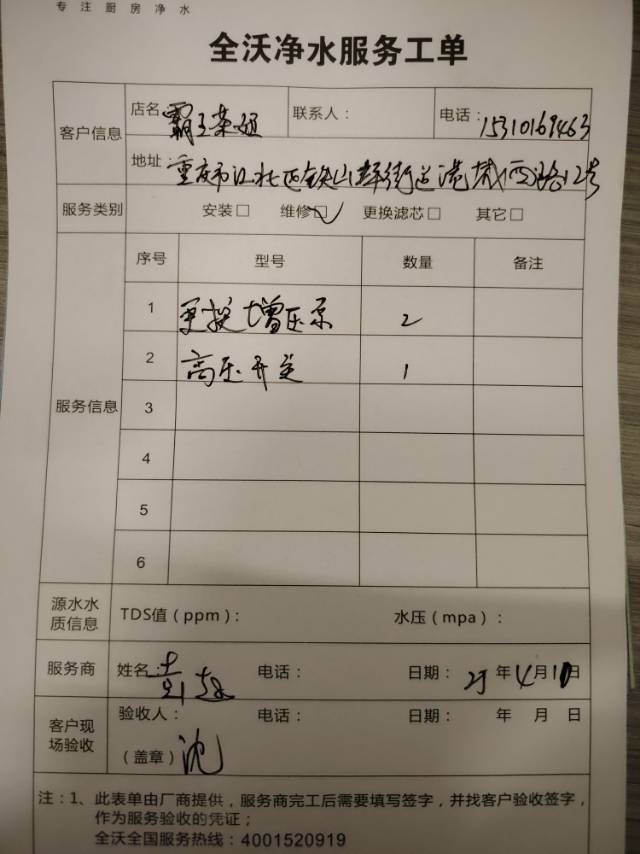 专注厨房净水
全沃净水服务工单
客户信息
店名: 霸王茶姬 联系人: 电话: 15310169463
地址: 重庆市江北区铁山坪街道港城西路12号
服务类别 安装□ 维修□✓ 更换滤芯□ 其它□
服务信息
序号 型号 数量 备注
1 更换增压泵 2
2 高压开关 1
3
4
5
6
源水水质信息 TDS值(ppm): 水压(mpa):
服务商 姓名: 电话: 日期: 25年4月1日
客户现场验收
验收人: 电话: 日期: 年 月 日
(盖章) 沈
注:1、此表单由厂商提供,服务商完工后需要填写签字,并找客户验收签字,
作为服务验收的凭证;
全沃全国服务热线:4001520919